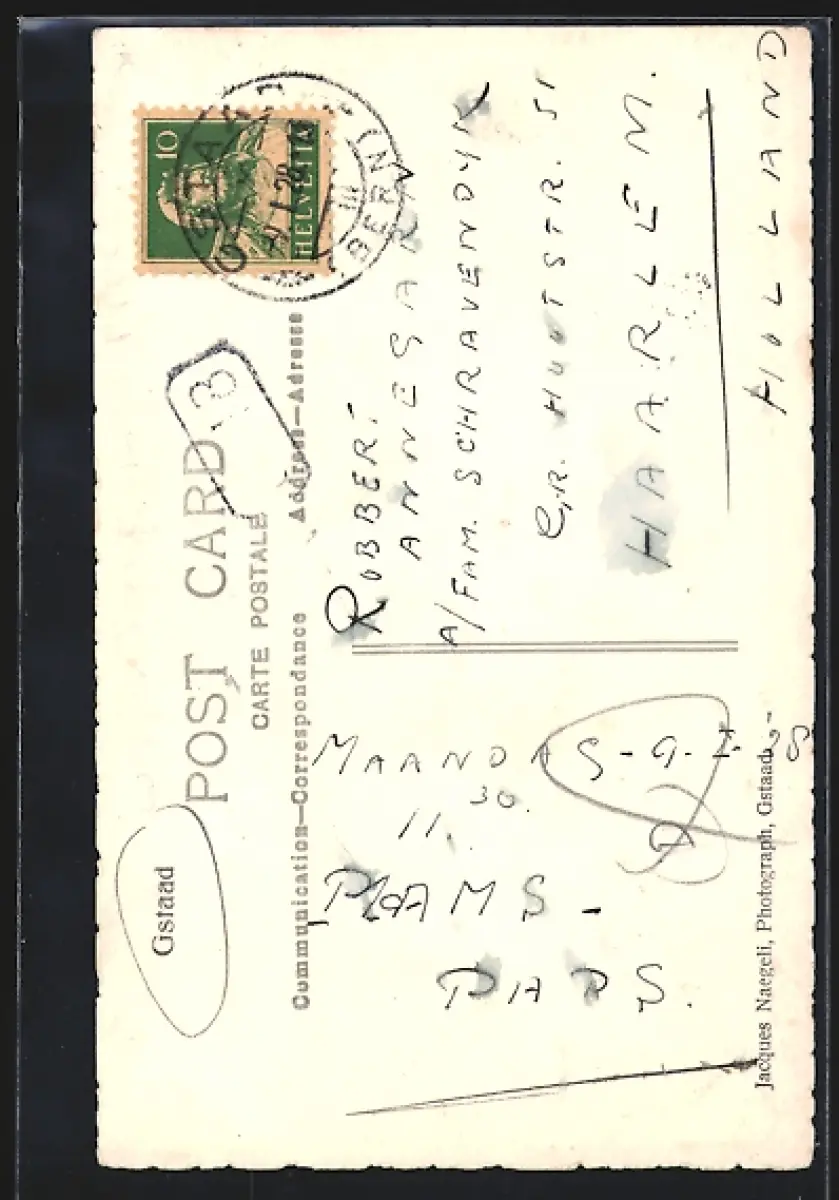 Gstaad
POST CARD
CARTE POSTALE
Communication—Correspondance
Address—Adresse
MAANDAG - 9 - I - 28
11.30
MAMS -
PAPS.
ROBBERT
ANNEGARN
A/FAM. SCHRAVENDYK
GR. HOUTSTR. 51
HAARLEM.
HOLLAND
Jacques Naegeli, Photograph, Gstaad
10
HELVETIA
GSTAAD 1
(BERN)
3